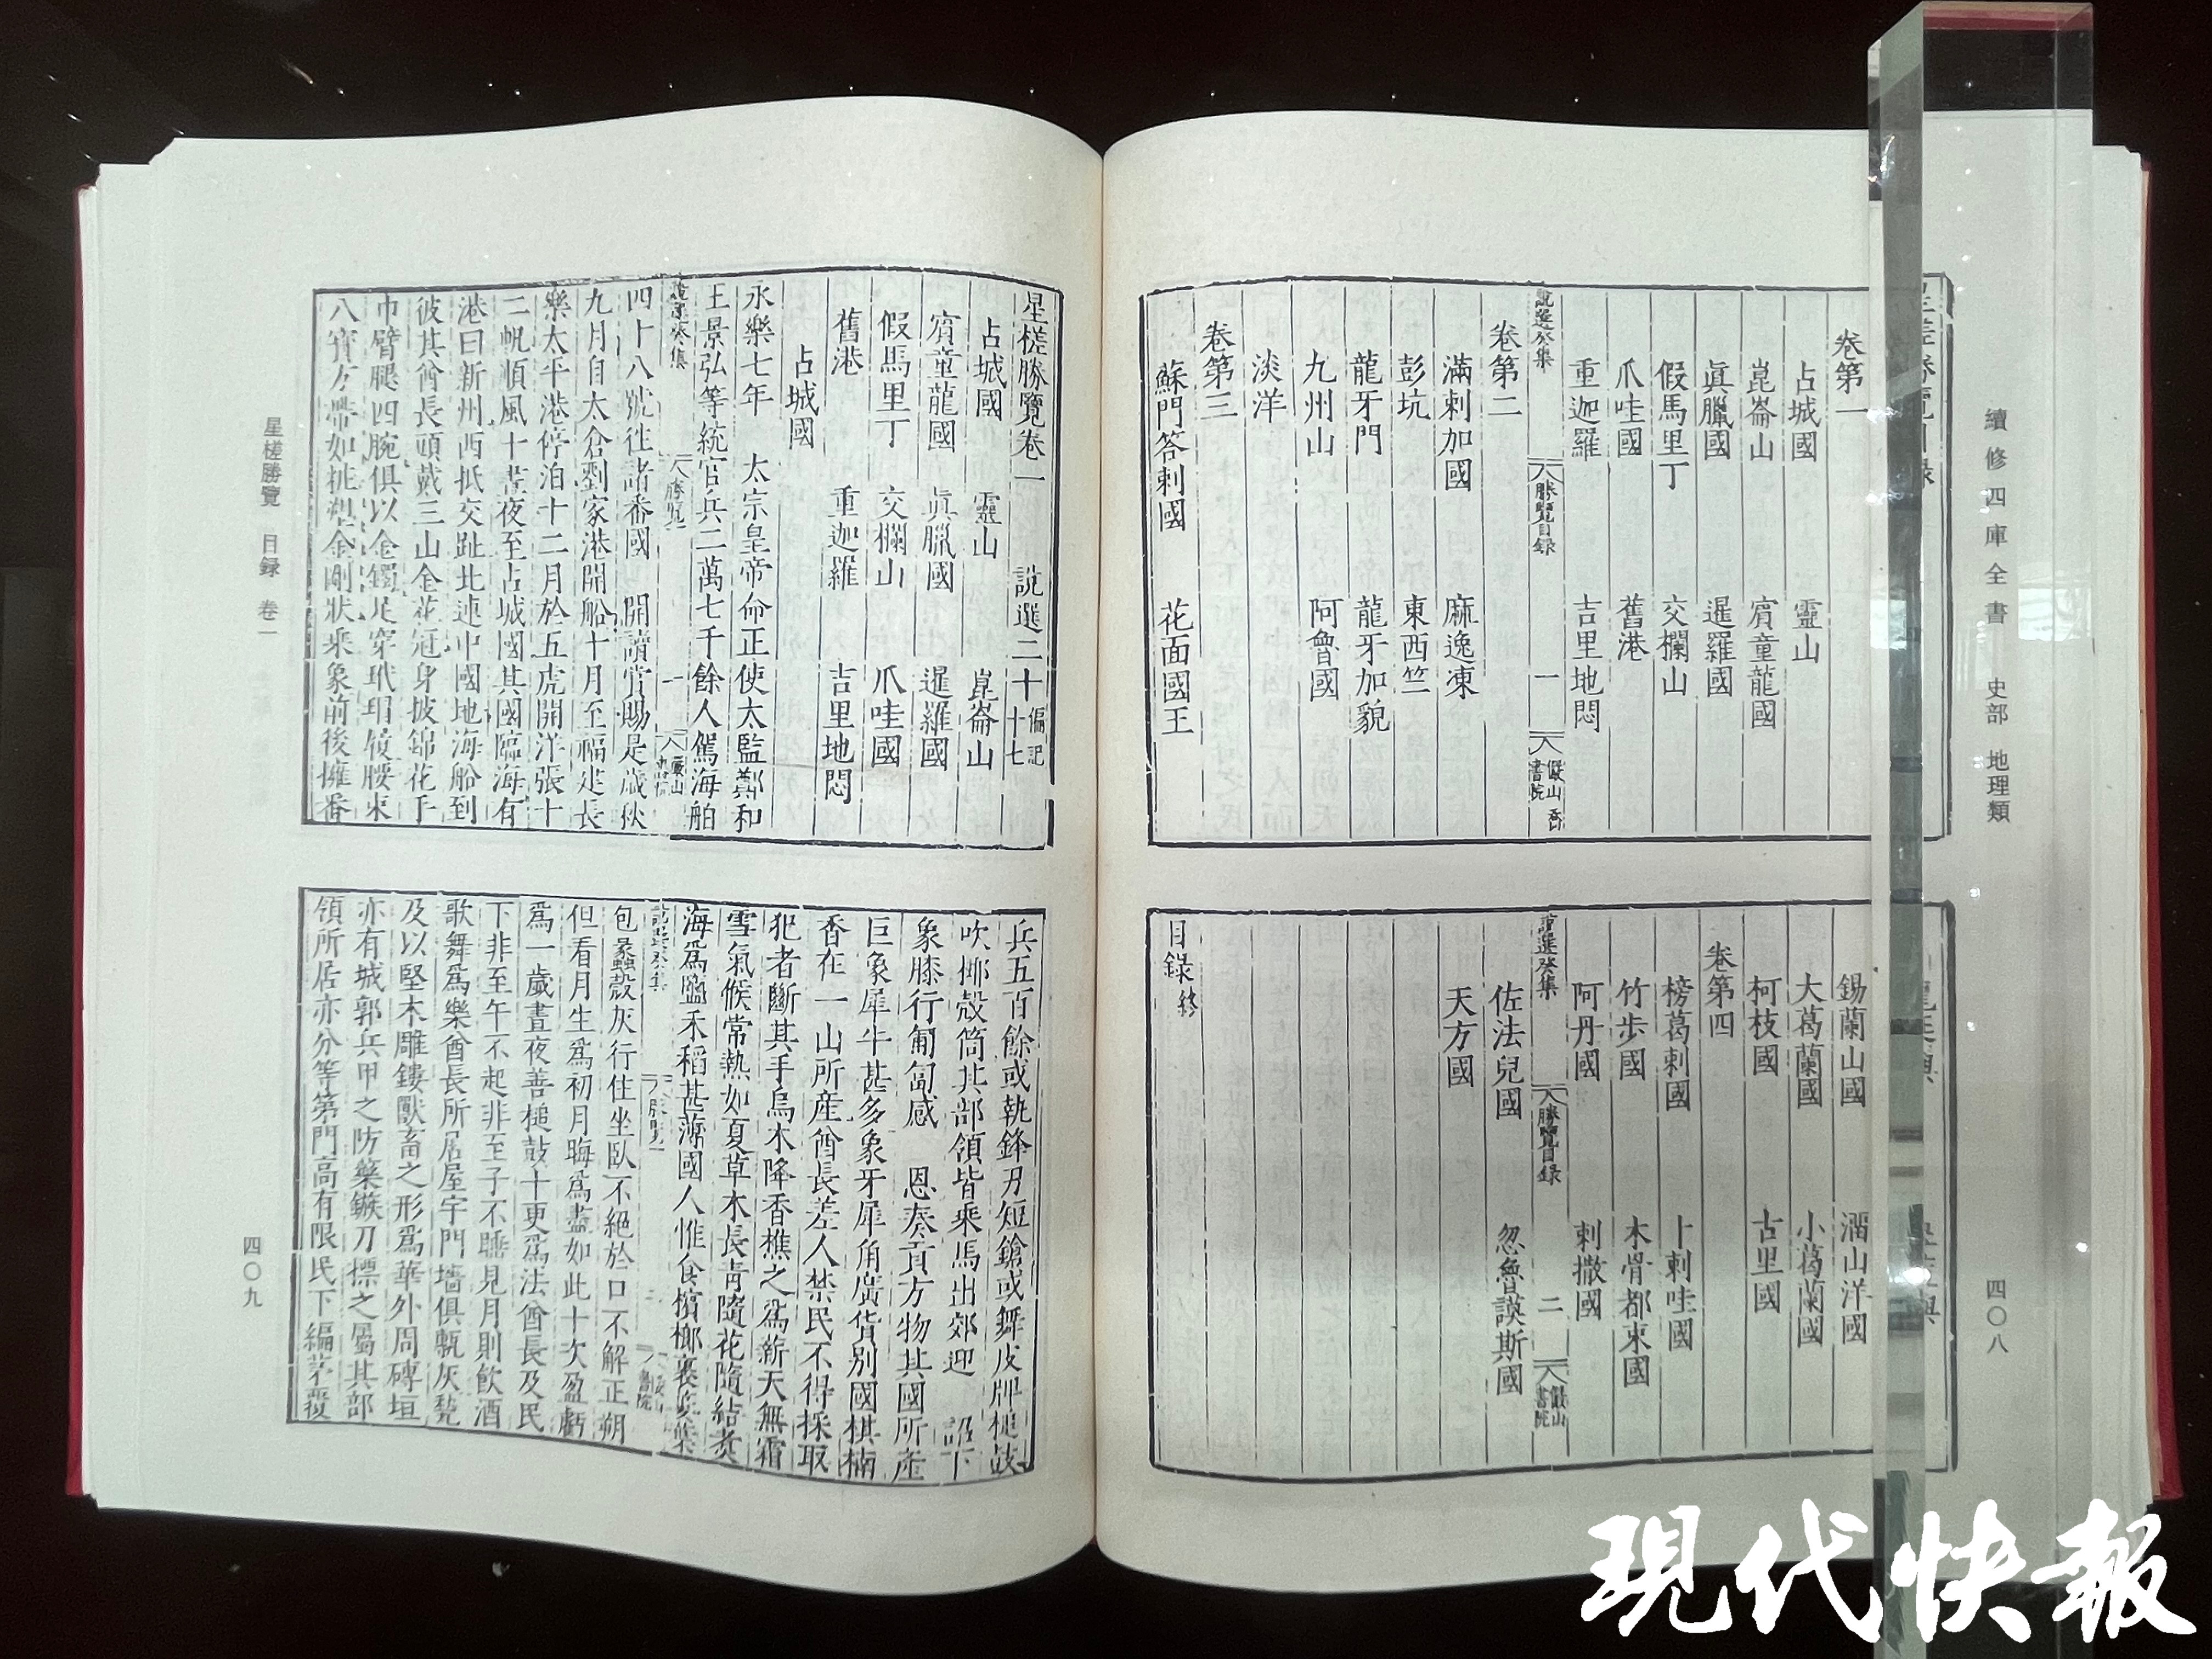 續修四庫全書 史部 地理類
四〇八
卷第一
占城國 靈山
崑崙山 賓童龍國
眞臘國 暹羅國
假馬里丁 交欄山
爪哇國 舊港
重迦羅 吉里地悶
說選癸集 勝覽目録 一 儼山書院
卷第二
滿剌加國 麻逸凍
彭坑 東西竺
龍牙門 龍牙加貌
九州山 阿魯國
淡洋
卷第三
蘇門答剌國 花面國王
錫蘭山國 溜山洋國
大葛蘭國 小葛蘭國
柯枝國 古里國
卷第四
榜葛剌國 卜剌哇國
竹步國 木骨都束國
阿丹國 剌撒國
說選癸集 勝覽目録 二 儼山書院
佐法兒國 忽魯謨斯國
天方國
目錄終
星槎勝覽卷一 說選二十 偏記十七
占城國 靈山 崑崙山
賓童龍國 眞臘國 暹羅國
假馬里丁 交欄山 爪哇國
舊港 重迦羅 吉里地悶
占城國
永樂七年 太宗皇帝命正使太監鄭和
王景弘等統官兵二萬七千餘人駕海舶
四十八號往諸番國 開讀賞賜是歲秋
九月自太倉劉家港開船十月至福建長
樂太平港停泊十二月於五虎開洋張十
二帆順風十晝夜至占城國其國臨海有
港曰新州西抵交趾北連中國地海船到
彼其酋長頭戴三山金花冠身披錦花手
巾臂腿四腕俱以金鐲足穿玳瑁履腰束
八寶方帶如粧塑金剛狀乘象前後擁番
兵五百餘或執鋒刃短鎗或舞皮牌槌鼓
吹椰殼筒其部領皆乘馬出郊迎 詔下
象膝行匍匐感 恩奏貢方物其國所產
巨象犀牛甚多象牙犀角廣貨別國棋楠
香在一山所產酋長差人禁民不得採取
犯者斷其手烏木降香樵之爲薪天無霜
雪氣候常熱如夏草木長青隨花隨結煑
海爲鹽禾稻甚薄國人惟食檳榔裹蔞葉
包蠡殼灰行住坐臥不絕於口不解正朔
但看月生爲初月晦爲盡如此十次盈虧
爲一歲晝夜善槌鼓十更爲法酋長及民
下非至午不起非至子不睡見月則飲酒
歌舞爲樂酋長所居屋宇門墻俱甎灰甃
及以堅木雕鏤獸畜之形爲華外周磚垣
亦有城郭兵甲之防藥鏃刀標之屬其部
領所居亦分等第門高有限民下編茅覆
星槎勝覽 目録 卷一
四〇九
現代快報